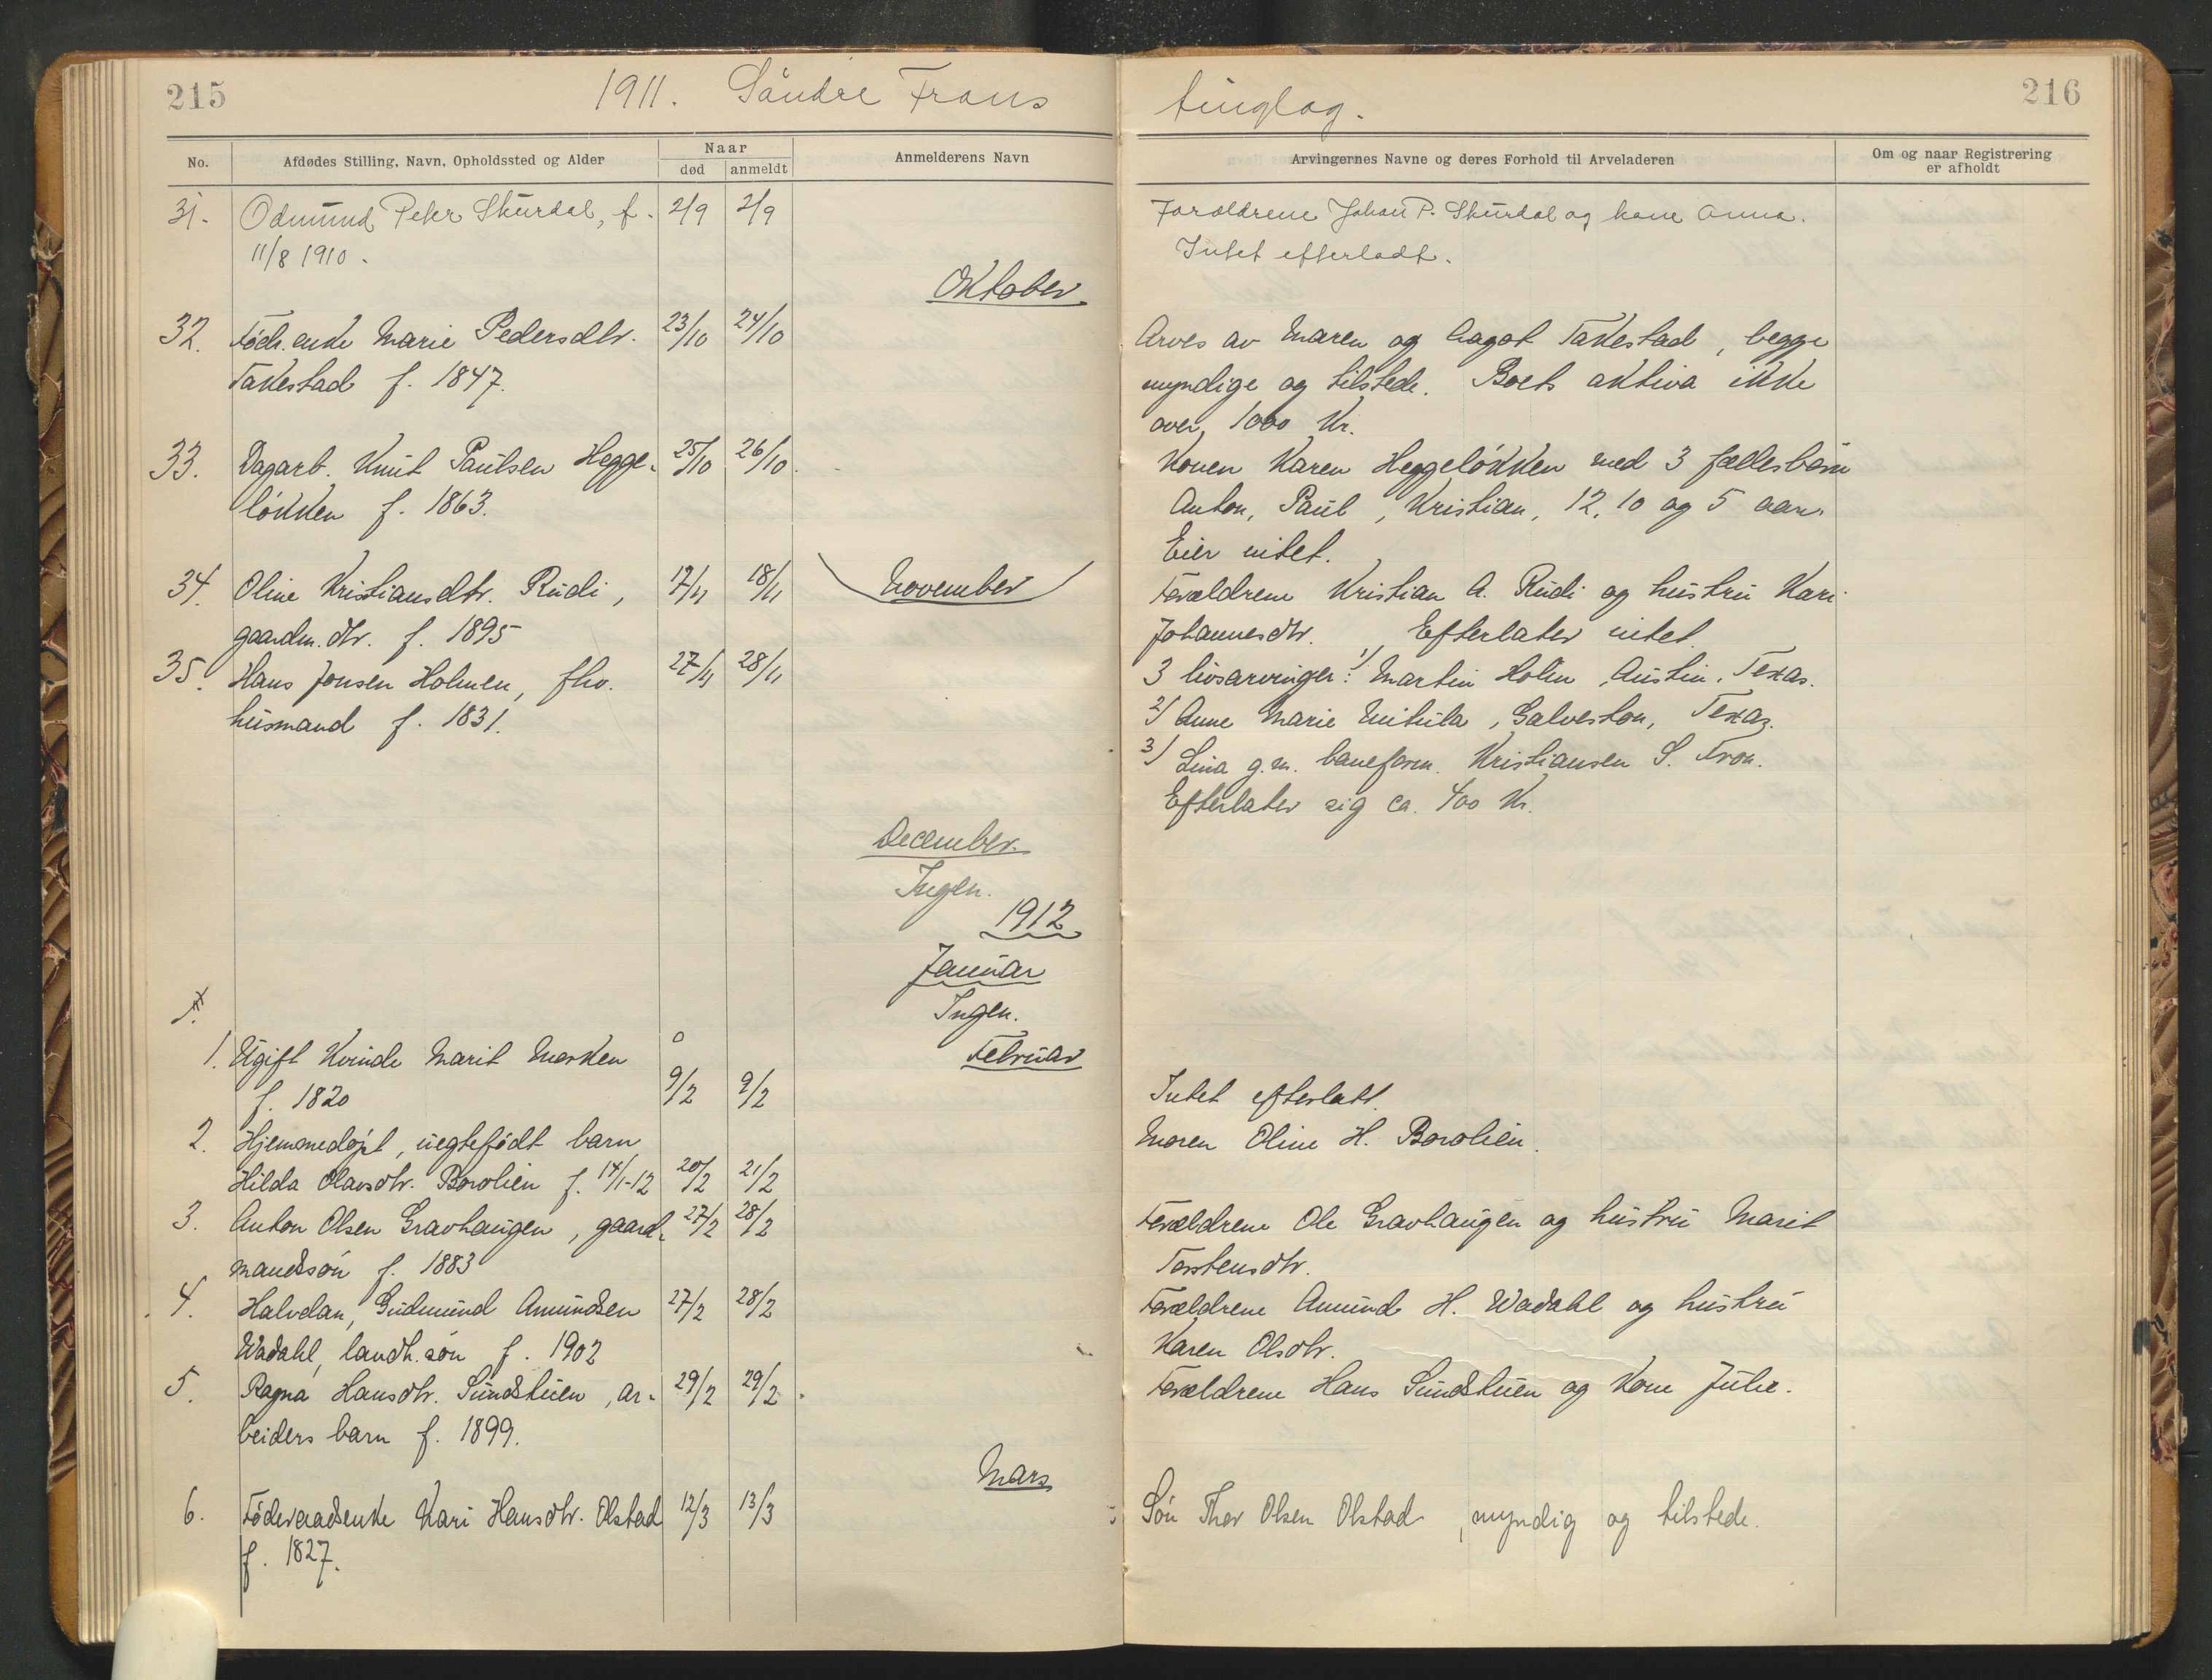 215
1911. Søndre Frons
No.
Afdødes Stilling, Navn, Opholdssted og Alder
Naar
død
anmeldt
Anmelderens Navn
31. Odmund Peter Skurdal, f. 2/9 2/9
11/8 1910.
Oktober
32. Føder.enke Marie Pedersdtr. 23/10 24/10
Takestad f. 1847.
33. Dagarb. Knut Paulsen Hegge- 25/10 26/10
løkken f. 1863.
34. Oline Kristiansdtr. Rudi, 17/11 18/11 November
gaardm.dtr. f. 1895
35. Hans Jonsen Holmen, fhv. 27/11 28/11
husmand f. 1831.
December.
Ingen.
1912
Januar
Ingen.
Februar
1. Ugift Kvinde Marit Morken
f. 1820 9/2 9/2
2. Hjemmedøpt, uegtefødt barn
Hilda Olavsdtr. Borolien f. 14/1-12 20/2 21/2
3. Anton Olsen Gravhaugen, gaard- 27/2 28/2
mandssøn f. 1883
4. Halvdan Gudmund Amundsen 27/2 28/2
Wadahl, landh.søn f. 1902
5. Ragna Hansdtr. Sundstuen, ar- 29/2 29/2
beiders barn f. 1899.
Mars
6. Føderaadsenke Kari Hansdtr. Olstad 12/3 13/3
f. 1827.
216
tinglag.
Arvingernes Navne og deres Forhold til Arveladeren
Om og naar Registrering
er afholdt
Forældrene Johan P. Skurdal og kone Anna.
Intet efterladt.
Arves av Maren og Aagot Takestad, begge
myndige og tilstede. Boets aktiva ikke
over 1000 Kr.
Konen Karen Heggeløkken med 3 fællesbørn
Anton, Paul, Kristian, 12, 10 og 5 aar.
Eier intet.
Forældrene Kristian A. Rudi og hustru Kari
Johannesdtr. Efterlater intet.
3 livsarvinger: 1/ Martin Holm, Austin, Texas.
2/ Anne Marie, Galveston, Texas.
3/ Lina g.m. baneform. Kristiansen S. Fron.
Efterlater sig ca. 400 Kr.
Intet efterlatt.
Moren Oline H. Borolien.
Forældrene Ole Gravhaugen og hustru Marit
Torstensdtr.
Forældrene Amund H. Wadahl og hustru
Karen Olsdtr.
Forældrene Hans Sundstuen og Kone Julie.
Søn Thor Olsen Olstad, myndig og tilstede.